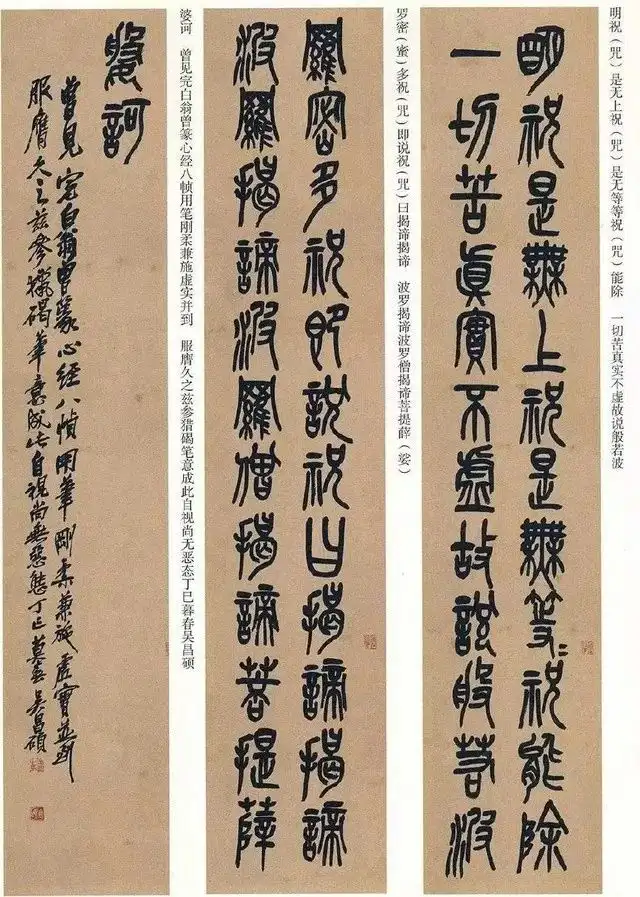 明祝（咒）是无上祝（咒）是无等等祝（咒）能除　一切苦真实不虚故说般若波
朙祝是無上祝是無等〻祝能除
一切苦眞實不虛故說般若波
罗密（蜜）多祝（咒）即说祝（咒）曰揭谛揭谛　波罗揭谛波罗僧揭谛菩提薛（娑）
羅密多祝即說祝曰揭諦揭諦
波羅揭諦波羅僧揭諦菩提薛
婆诃　曾见完白翁曾篆心经八帧用笔刚柔兼施虚实并到　服膺久之兹参猎碣笔意成此自视尚无恶态丁巳暮春吴昌硕
婆訶
曾見完白翁曾篆心经八幀用筆剛柔兼施虛實並到
服膺久之茲參獵碣筆意成此自視尚無惡態丁巳莫春吳昌碩